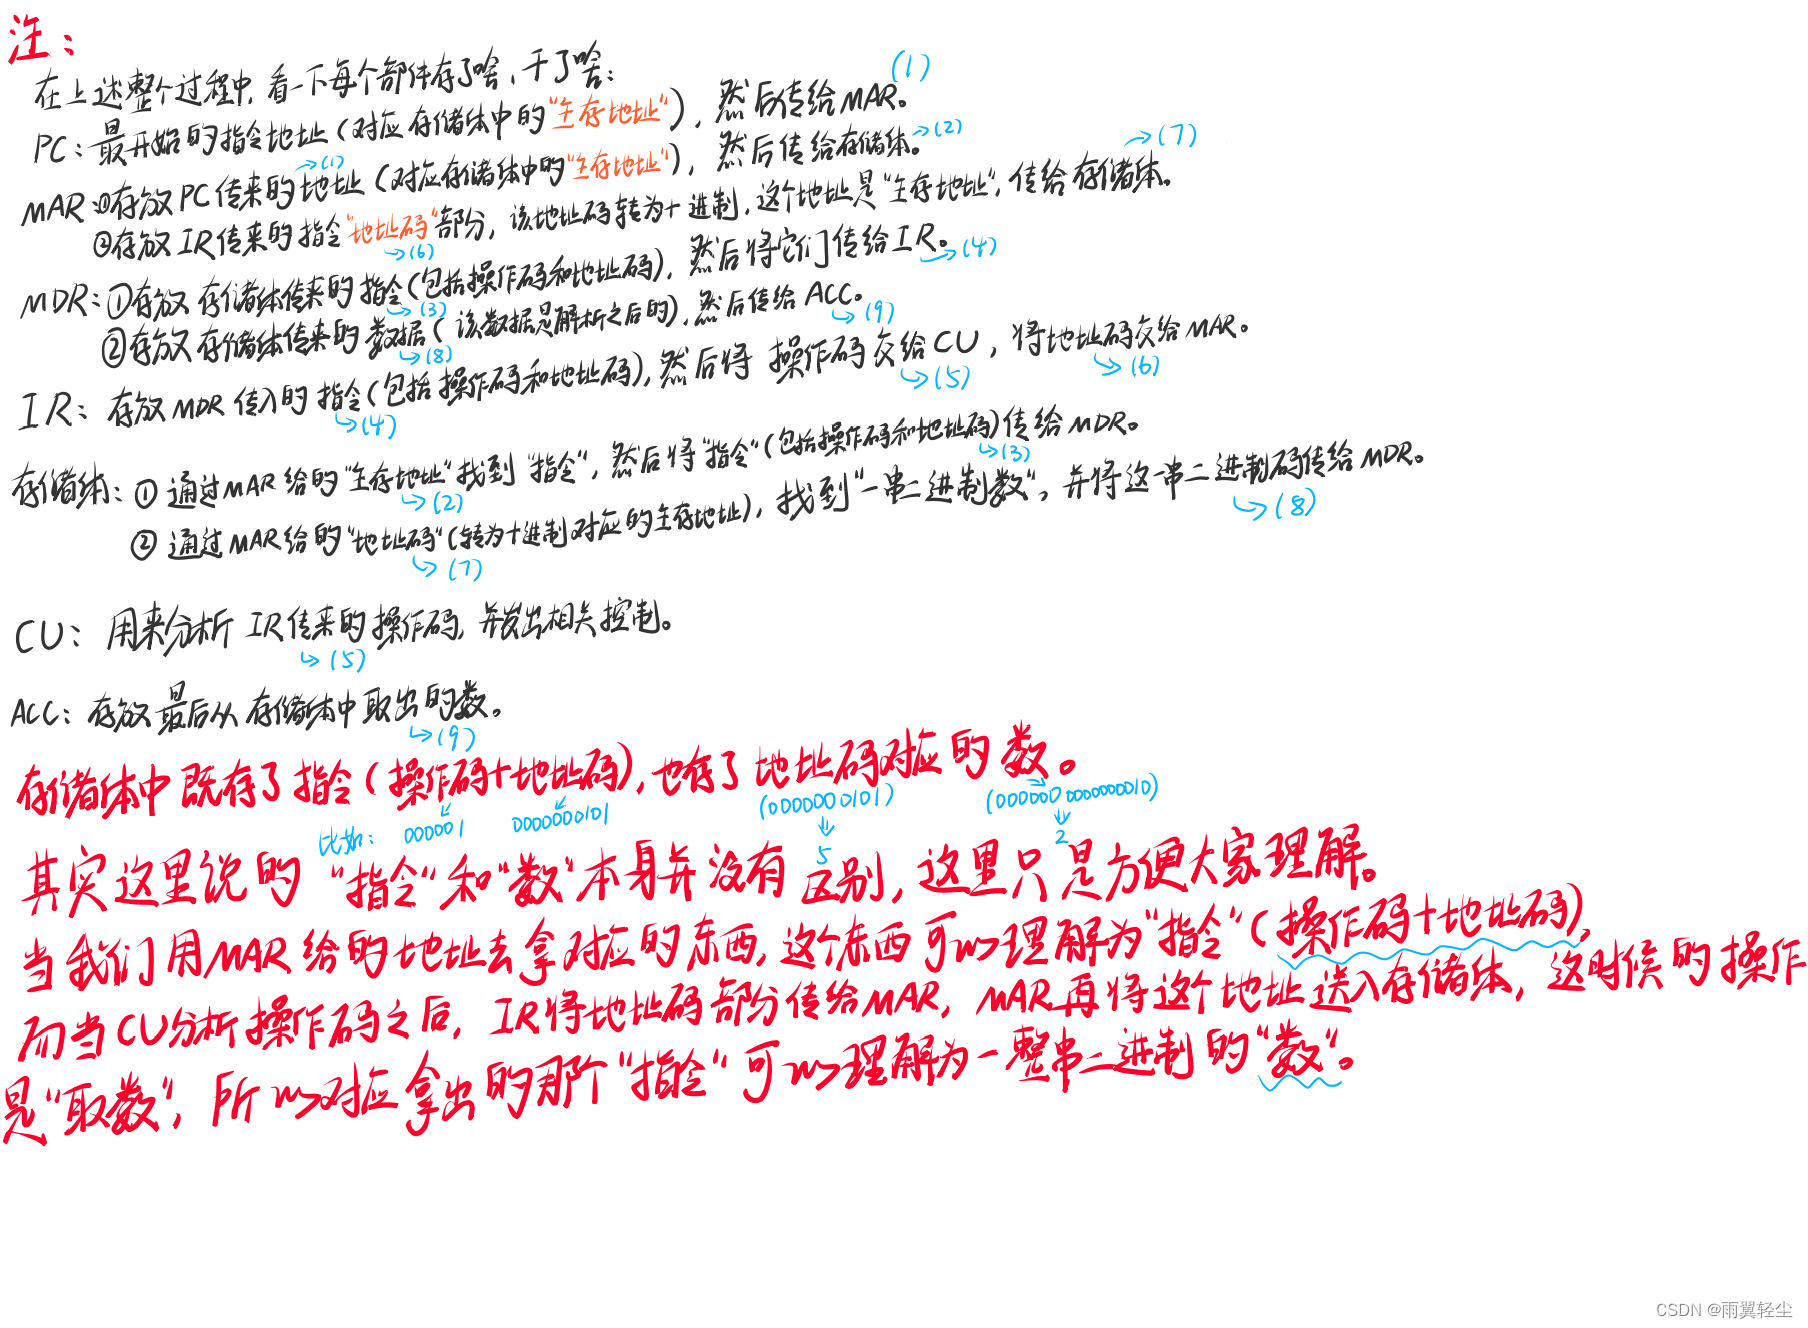 注：
在上述整个过程中，看一下每个部件存了啥，干了啥：
PC：最开始的指令地址（对应存储体中的"主存地址"），然后传给MAR。(1)
MAR：①存放PC传来的地址（对应存储体中的"主存地址"），然后传给存储体。→(2)
→(1)
②存放IR传来的指令"地址码"部分，该地址码转为十进制，这个地址是"主存地址"，传给存储体。→(7)
→(6)
MDR：①存放存储体传来的指令（包括操作码和地址码），然后将它们传给IR。→(4)
→(3)
②存放存储体传来的数据（该数据是解析之后的），然后传给ACC。
→(8) →(9)
IR：存放MDR传入的指令（包括操作码和地址码），然后将操作码交给CU，将地址码交给MAR。
→(4) →(5) →(6)
存储体：①通过MAR给的"主存地址"找到"指令"，然后将"指令"（包括操作码和地址码）传给MDR。
→(2) →(3)
②通过MAR给的"地址码"（转为十进制对应的主存地址），找到"一串二进制数"，并将这一串二进制码传给MDR。
→(7) →(8)
CU：用来分析IR传来的操作码，并发出相关控制。
→(5)
ACC：存放最后从存储体中取出的数。
→(9)
存储体中既存了指令（操作码+地址码），也存了地址码对应的数。
比如：000001 0000000101 (0000000101) (0000000000000010)
5 2
其实这里说的"指令"和"数"本身并没有区别，这里只是方便大家理解。
当我们用MAR给的地址去拿对应的东西，这个东西可以理解为"指令"（操作码+地址码），
而当CU分析操作码之后，IR将地址码部分传给MAR，MAR再将这个地址送入存储体，这时候的操作
是"取数"，所以对应拿出的那个"指令"可以理解为一整串二进制的"数"。
CSDN @雨翼轻尘